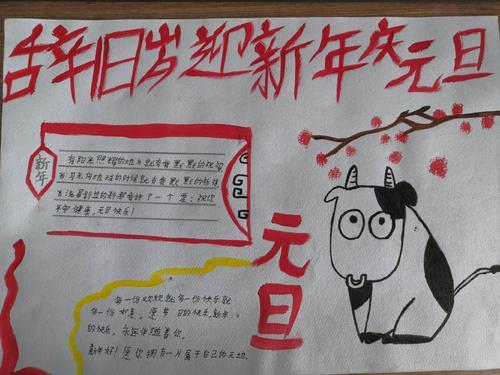 辞旧岁迎新年庆元旦
新年
有阳光照耀的地方就有我默默的祝福,
当月光洒向地球的时候就有我默默的祈祷,
当流星划过的刹那我许了一个愿:祝你
平安健康,元旦快乐!
元旦
每一份欢欣就每一份快乐就
每一份祝愿。愿节日的快乐,新年
的快乐,永远伴随着你。
新年好!愿你拥有一片属于自己的天地。